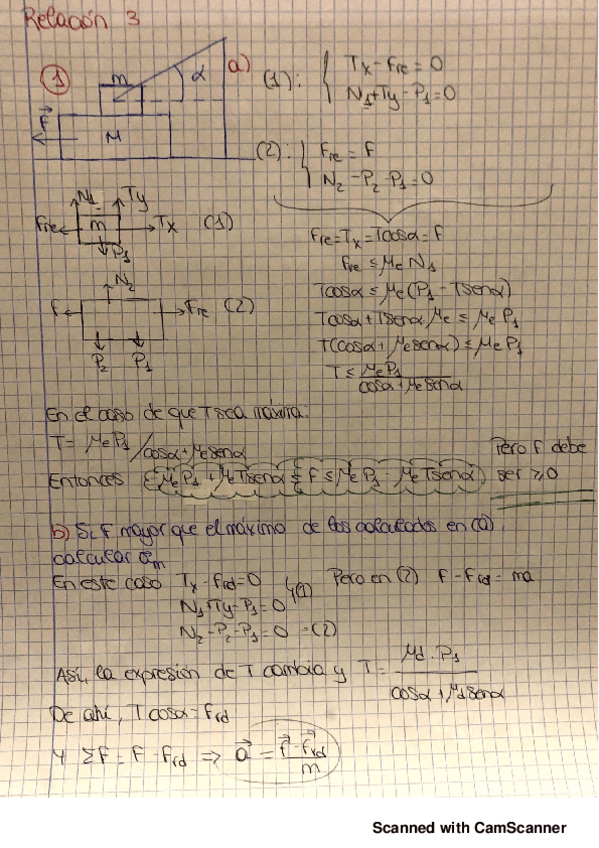 Relación 3
1
m
α
F
M
a)
(1): { Tx - Fre = 0
N1 + Ty - P1 = 0
(2): { Fre = F
N2 - P2 - P1 = 0
N1 Ty
Fre m Tx (1)
P1
N2
F Fre (2)
P2 P1
Fre = Tx = Tcosα = F
Fre ≤ μe N1
Tcosα ≤ μe (P1 - Tsenα)
Tcosα + Tsenα μe ≤ μe P1
T(cosα + μe senα) ≤ μe P1
T ≤ μe P1 / cosα + μe senα
En el caso de que T sea máxima:
T = μe P1 / cosα + μe senα
Entonces μe P1 + μe Tsenα ≤ F ≤ μe P1 - μe Tsenα
Pero F debe
ser ≥ 0
b) Si F mayor que el máximo de los calculados en (a),
calcular am
En este caso Tx - Frd = 0
N1 + Ty - P1 = 0 (1)
N2 - P2 - P1 = 0 - (2)
Pero en (2) F - Frd = ma
Así, la expresión de T cambia y T = μd · P1 / cosα + μd senα
De ahí, T cosα = Frd
Y ΣF = F - Frd => a = F - Frd / m
Scanned with CamScanner